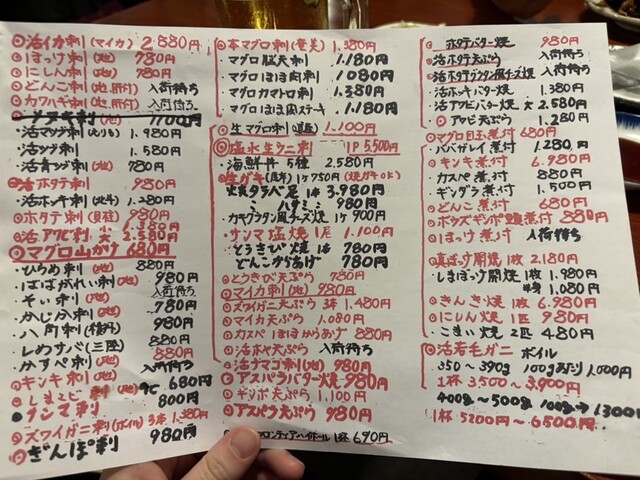 ◎活イカ刺(マイカ) 2.880円
◎ほっけ刺(地) 780円
◎にしん刺(地) 780円
・どんこ刺(地.肝付) 入荷待ち
・カワハギ刺(地.肝付) 入荷待ち
1700円
・活マツブ刺 1.980円
・活ツブ刺 1.580円
・活青ツブ刺(地) 780円
◎活ホタテ刺 980円
・活ホッキ刺 1.280円
◎ホタテ刺(貝柱) 980円
◎活アワビ刺 小 1.380円
大 2.580円
◎マグロ山かけ 680円
・ひらめ刺(地) 880円
・ばばがれい刺(地) 980円
・そい刺(地) 入荷待ち
・かじか刺(地) 780円
・八角刺 980円
・しめサバ 880円
・かすべ刺(地) 880円
◎キンキ刺(地) 入荷待ち
◎しまエビ刺(地) 680円
◎サンマ刺 800円
◎ズワイガニ刺(ボイル) 3本 1.380円
◎ぎんぽ刺 980円
◎本マグロ刺 1.380円
・マグロ脳天刺 1.180円
・マグロほほ肉刺 1.080円
・マグロカマトロ刺 1.380円
・マグロほほ肉ステーキ 1.180円
◎生マグロ刺 1.100円
◎塩水生ウニ刺 1P 5,500円
・海鮮丼 5種 2.580円
◎生ガキ 1ケ750円
炭タラバ足 1本 3.980円
ハサミ 980円
・カキグラタン風チーズ焼 1ケ 900円
・サンマ塩焼 1尾 1.100円
・とうきび焼 1本 780円
・どんこからあげ 780円
◎とうきび天ぷら 780円
◎マイカ刺(地) 980円
◎ズワイガニ天ぷら 3本 1.480円
◎マイカ天ぷら 880円
◎カスベほほからあげ 880円
◎活ホヤ天ぷら 入荷待ち
◎活ナマコ刺(地) 980円
◎アスパラバター焼 980円
◎ギンポ天ぷら 1.100円
◎アスパラ天ぷら 980円
フロンティアハイボール 1杯 690円
ホタテバター焼 980円
◎活ホタテ天ぷら 入荷待ち
◎活ホタテグラタン風チーズ焼 入荷待ち
・活ホッキバター焼 1.380円
・活アワビバター焼 大 2.580円
◎アワビ天ぷら 1.280円
◎マグロ目玉煮付 680円
・ババガレイ煮付 1.280円
・キンキ煮付 6.980円
・カスベ煮付 880円
・ギンダラ煮付 1.500円
・どんこ煮付 680円
◎ボウズギンポ煮付 880円
◎ほっけ煮付 入荷待ち
◎真ほっけ開焼 1枚 2.180円
・しまほっけ開焼 1枚 1.980円
半身 1.080円
◎きんき焼 1枚 6.980円
◎にしん焼 1匹 980円
・こまい焼 2匹 480円
◎活若毛ガニ ボイル
350〜390g 100gあたり 1,000円
1杯 3500〜3,900円
400g〜500g 100g→1300円
1杯 5200円〜6500円